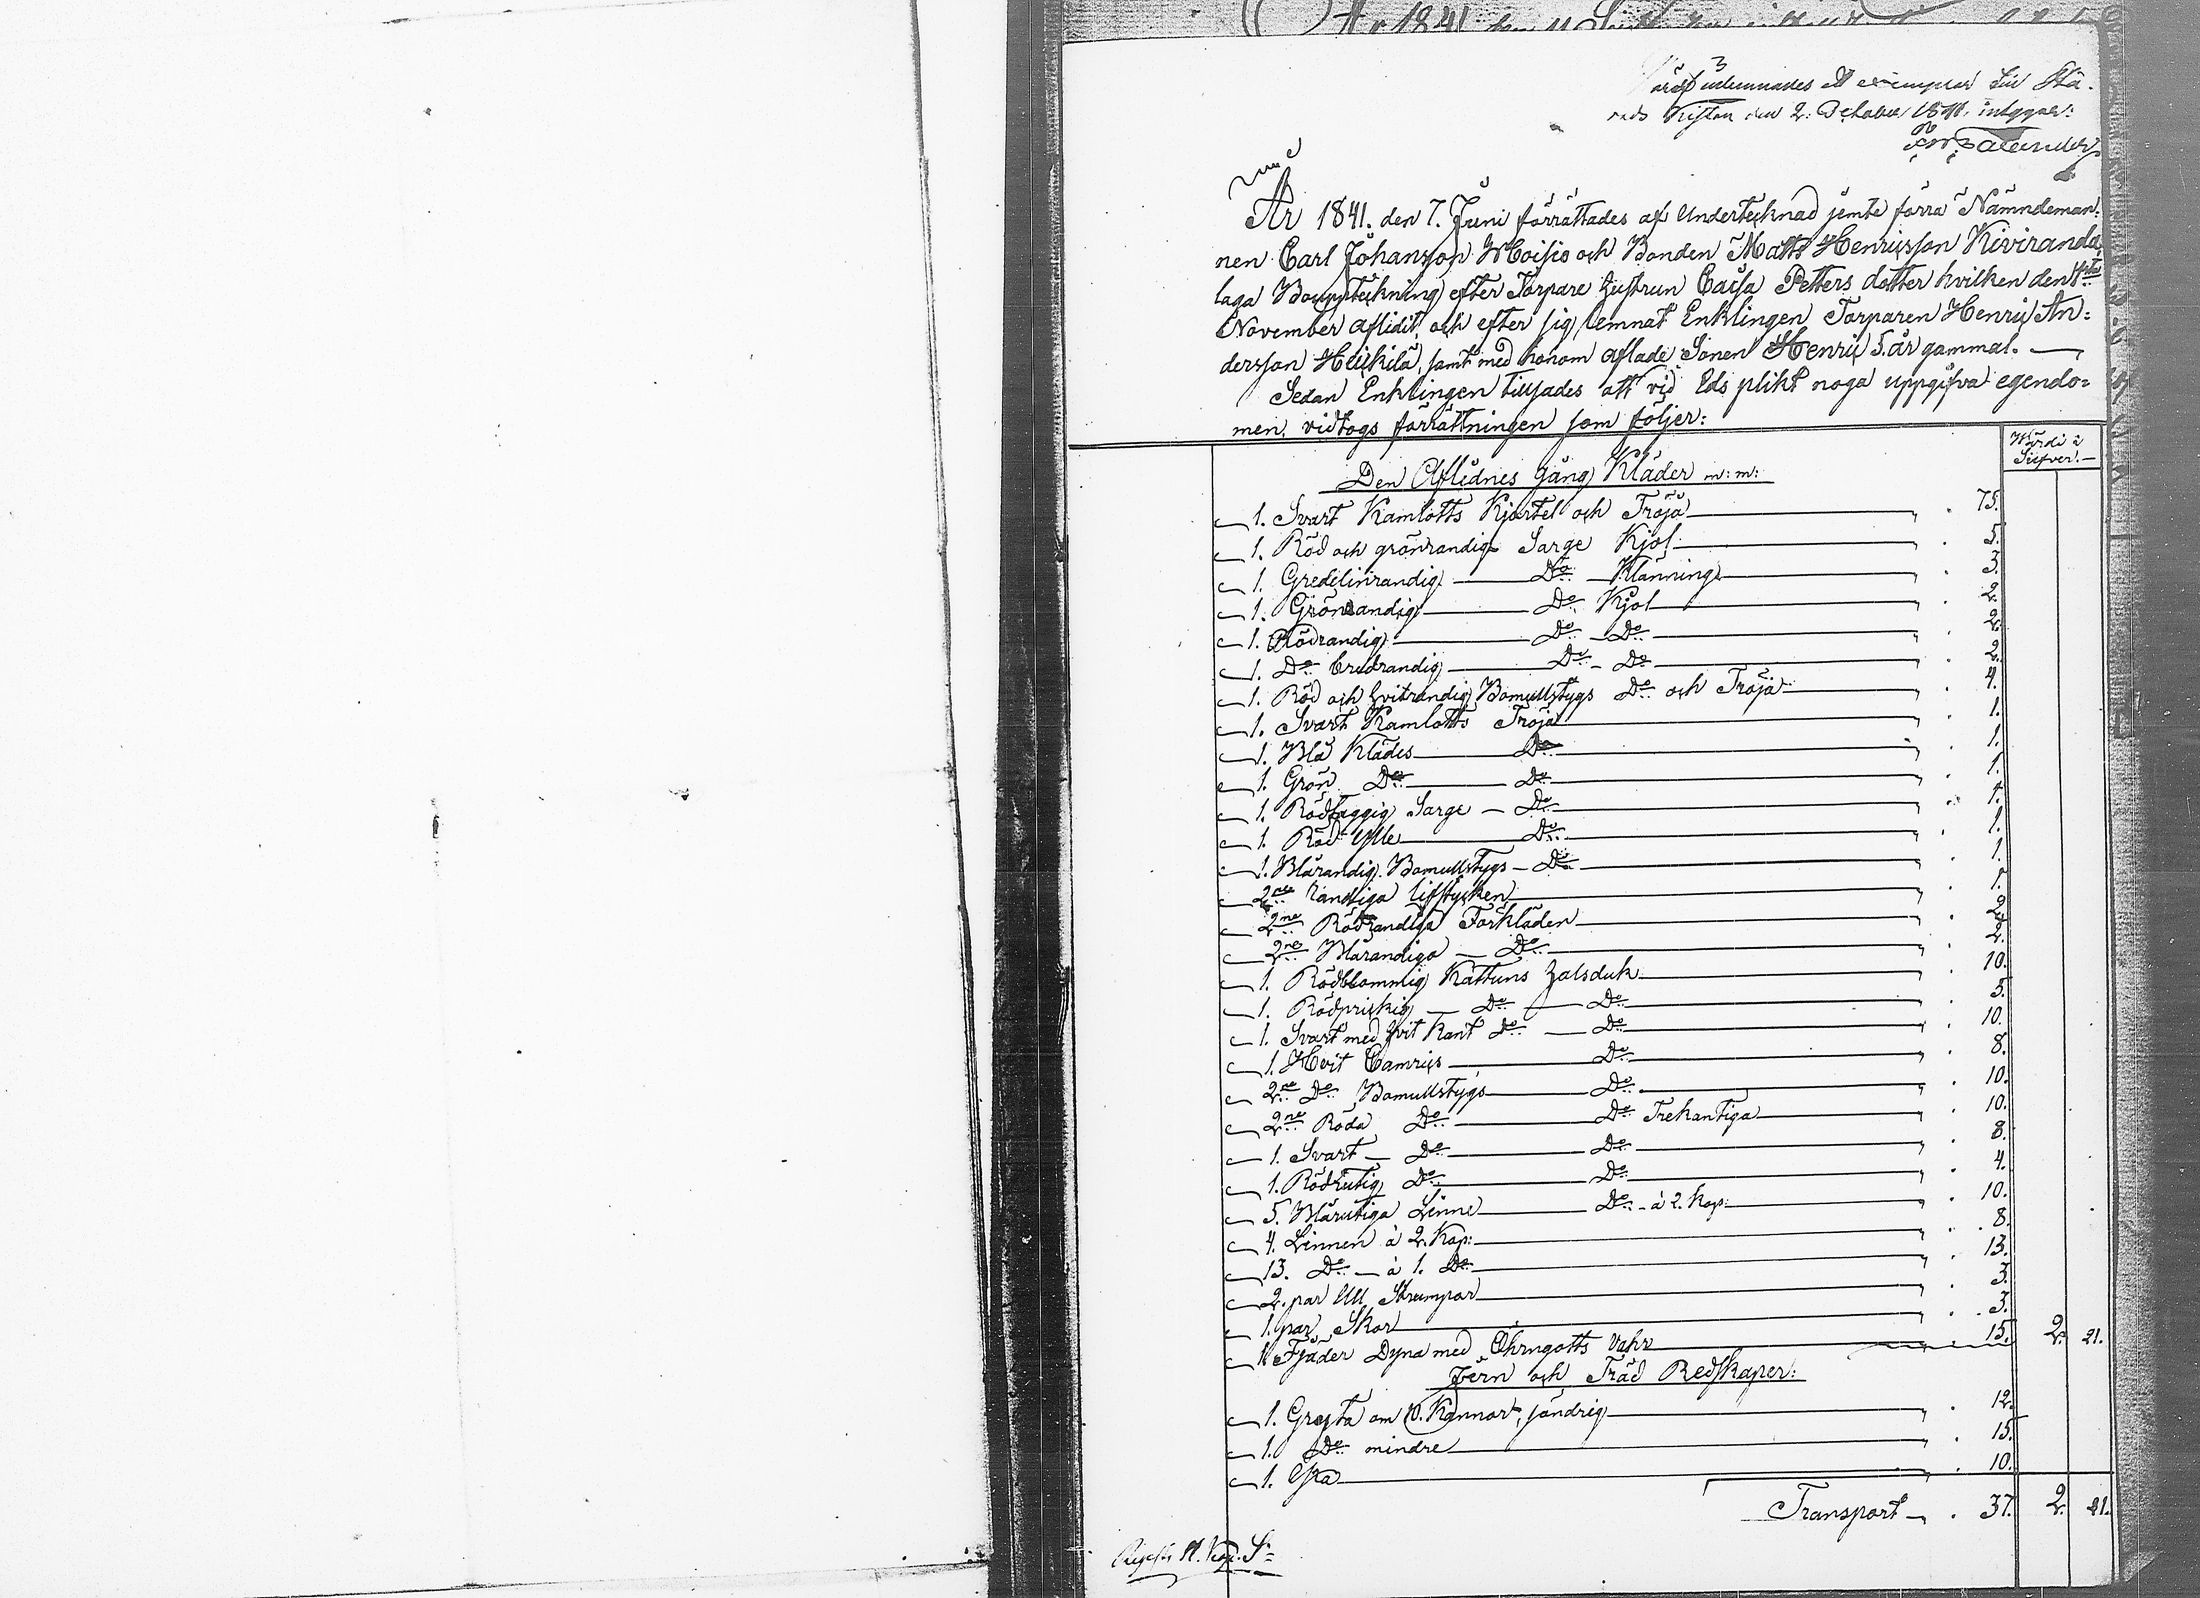 År 1841
ett exemplar
den 2. October 1841, intygar:
År 1841. den 7. Juni förrättades af Undertecknad jemte förra Nämndeman-
nen Carl Johansson Moisio och Bonden Matts Henricsson Kiviranda
laga Bouppteckning efter Torpare hustrun Caisa Petters dotter hvilken den
November aflidit, och efter sig lemnat Enklingen Torparen Henric An=
dersson Heickilä, samt med honom aflade Sonen Henric 5. år gammal.
Sedan Enklingen tillsades att vid Eds plikt noga uppgifva egendo=
men, vidtogs förrättningen som följer:
Wärde i
Silfver.
Den Aflidnes Gång Kläder m: m:
1. Svart Kamlotts Kjortel och Tröja 75.
1. Röd och grönrandig Sarge Kjol 5.
1. Gredelinrandig Do Klänning 3.
1. Grönrandig Do Kjol 2.
1. Rödrandig Do Do 2.
1. Do bredrandig Do Do 2.
1. Röd och hvitrandig Bomullstygs Do och Tröja 4.
1. Svart Kamlotts Tröja 1.
1. Blå Klädes Do 1.
1. Grön Do Do 1.
1. Rödtaggig Sarge Do 1.
1. Röd Ylle Do 1.
1. Blårandig Bomullstygs Do 1.
2ne randiga lifstycken 1.
2ne Rödrandiga Förkläden 2.
2ne Blårandiga Do 2.
1. Rödblommig Kattuns halsduk 10.
1. Rödprickig Do Do 5.
1. Svart med hvit Kant Do Do 10.
1. Hvit Camrics Do 8.
2ne Do Bomullstygs Do 10.
2ne Röda Do Do Trekantiga 10.
1. Svart Do Do 8.
1. Rödrutig Do Do 4.
5. Blårutiga Linne Do à 2. Kop: 10.
4. Linnen à 2. Kop: 8.
13. Do à 1. Do 13.
2. par Ull Strumpor 3.
1. par Skor 3.
1. Fjäder Dyna med Öhrngotts Vahr 15. 2. 21.
Jern och Träd Redskaper:
1. Gryta om 10. Kannor, söndrig 12.
1. Do mindre 15.
1. Yxa 10.
Transport 37. 2. 21.